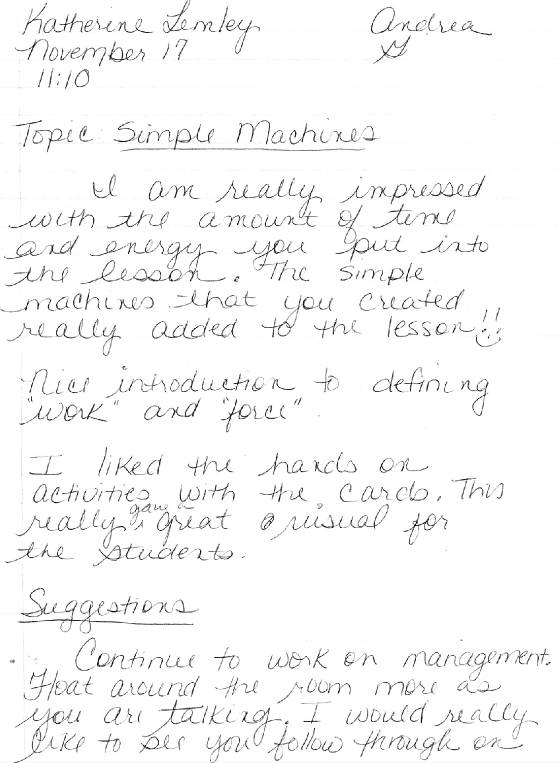 Katherine Lemley Andrea
November 17
11:10
Topic: Simple Machines
I am really impressed
with the amount of time
and energy you put into
the lesson. The simple
machines that you created
really added to the lesson!!
Nice introduction to defining
"work" and "force".
I liked the hands on
activities with the cards. This
really gave a great visual for
the students.
Suggestions
Continue to work on management.
Float around the room more as
you are talking. I would really
like to see you follow through on